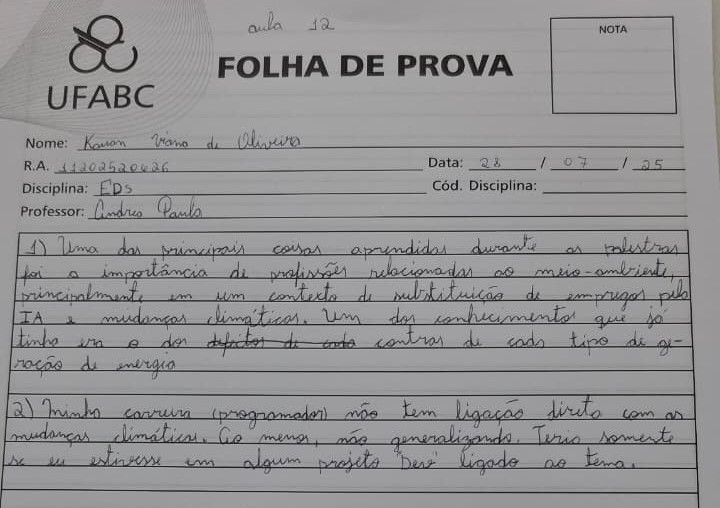 aula 12
UFABC
FOLHA DE PROVA
NOTA
Nome: Kauan Viano de Oliveira
R.A. 11202520426
Data: 28 / 07 / 25
Disciplina: EDS
Cód. Disciplina:
Professor: Andrea Paula
1) Uma das principais coisas aprendidas durante as palestras
foi a importância de profissões relacionadas ao meio-ambiente,
principalmente em um contexto de substituição de empregos pela
IA e mudanças climáticas. Um dos conhecimentos que já
tinha era o dos defeitos de cada contras de cada tipo de ge-
ração de energia
2) Minha carreira (programador) não tem ligação direta com as
mudanças climáticas. Ao menos, não generalizando. Teria somente
se eu estivesse em algum projeto ligado ao tema.